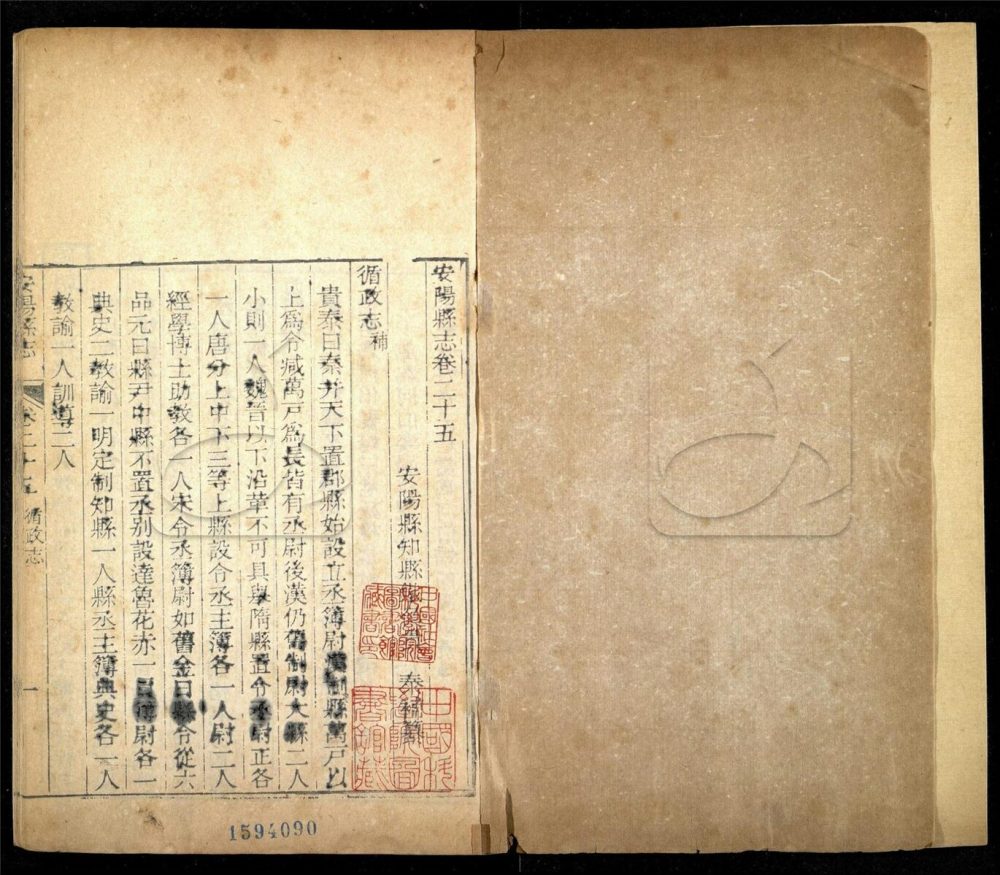 安陽縣志卷二十五
安陽縣知縣 泰補纂
循政志補
貴泰曰秦并天下置郡縣始設立丞簿尉漢制縣萬戶以
上爲令减萬戶爲長皆有丞尉後漢仍舊制尉大縣二人
小則一人魏晉以下沿革不可具舉隋縣置令丞尉正各
一人唐分上中下三等上縣設令丞主簿各一人尉二人
經學博士助教各一人宋令丞簿尉如舊金曰縣令從六
品元曰縣尹中縣不置丞别設達魯花赤一簿尉各一
典史二教諭一明定制知縣一人縣丞主簿典史各一人
教諭一人訓導二人
安陽縣志
卷二十五
循政志
一
1594090